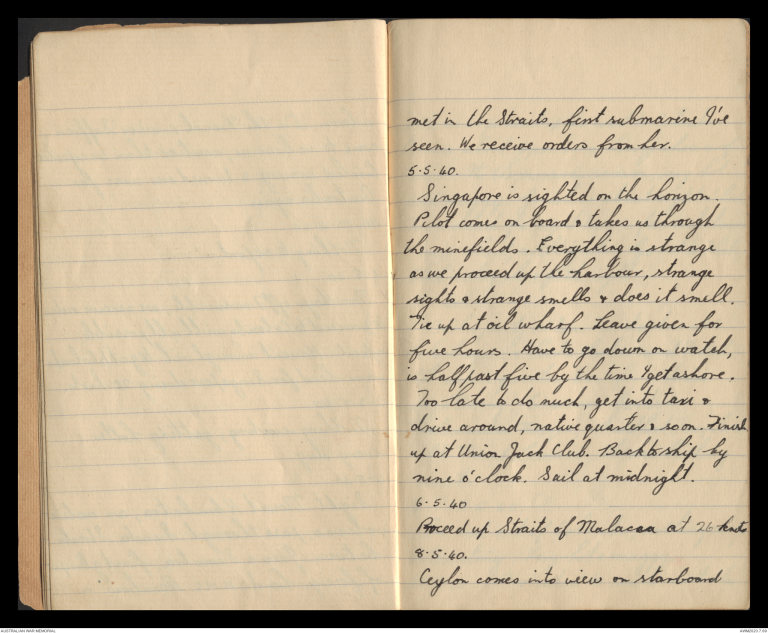 met in the Straits, first submarine I've
seen. We receive orders from her.
5.5.40.
Singapore is sighted on the horizon.
Pilot comes on board & takes us through
the minefields. Everything is strange
as we proceed up the harbour, strange
sights & strange smells & does it smell.
Tie up at oil wharf. Leave given for
five hours. Have to go down on watch,
is half past five by the time I get ashore.
Too late to do much, get into taxi &
drive around, native quarter & so on. Finish
up at Union Jack Club. Back to ship by
nine o'clock. Sail at midnight.
6.5.40
Proceed up Straits of Malacca at 26 knots
8.5.40.
Ceylon comes into view on starboard
AUSTRALIAN WAR MEMORIAL